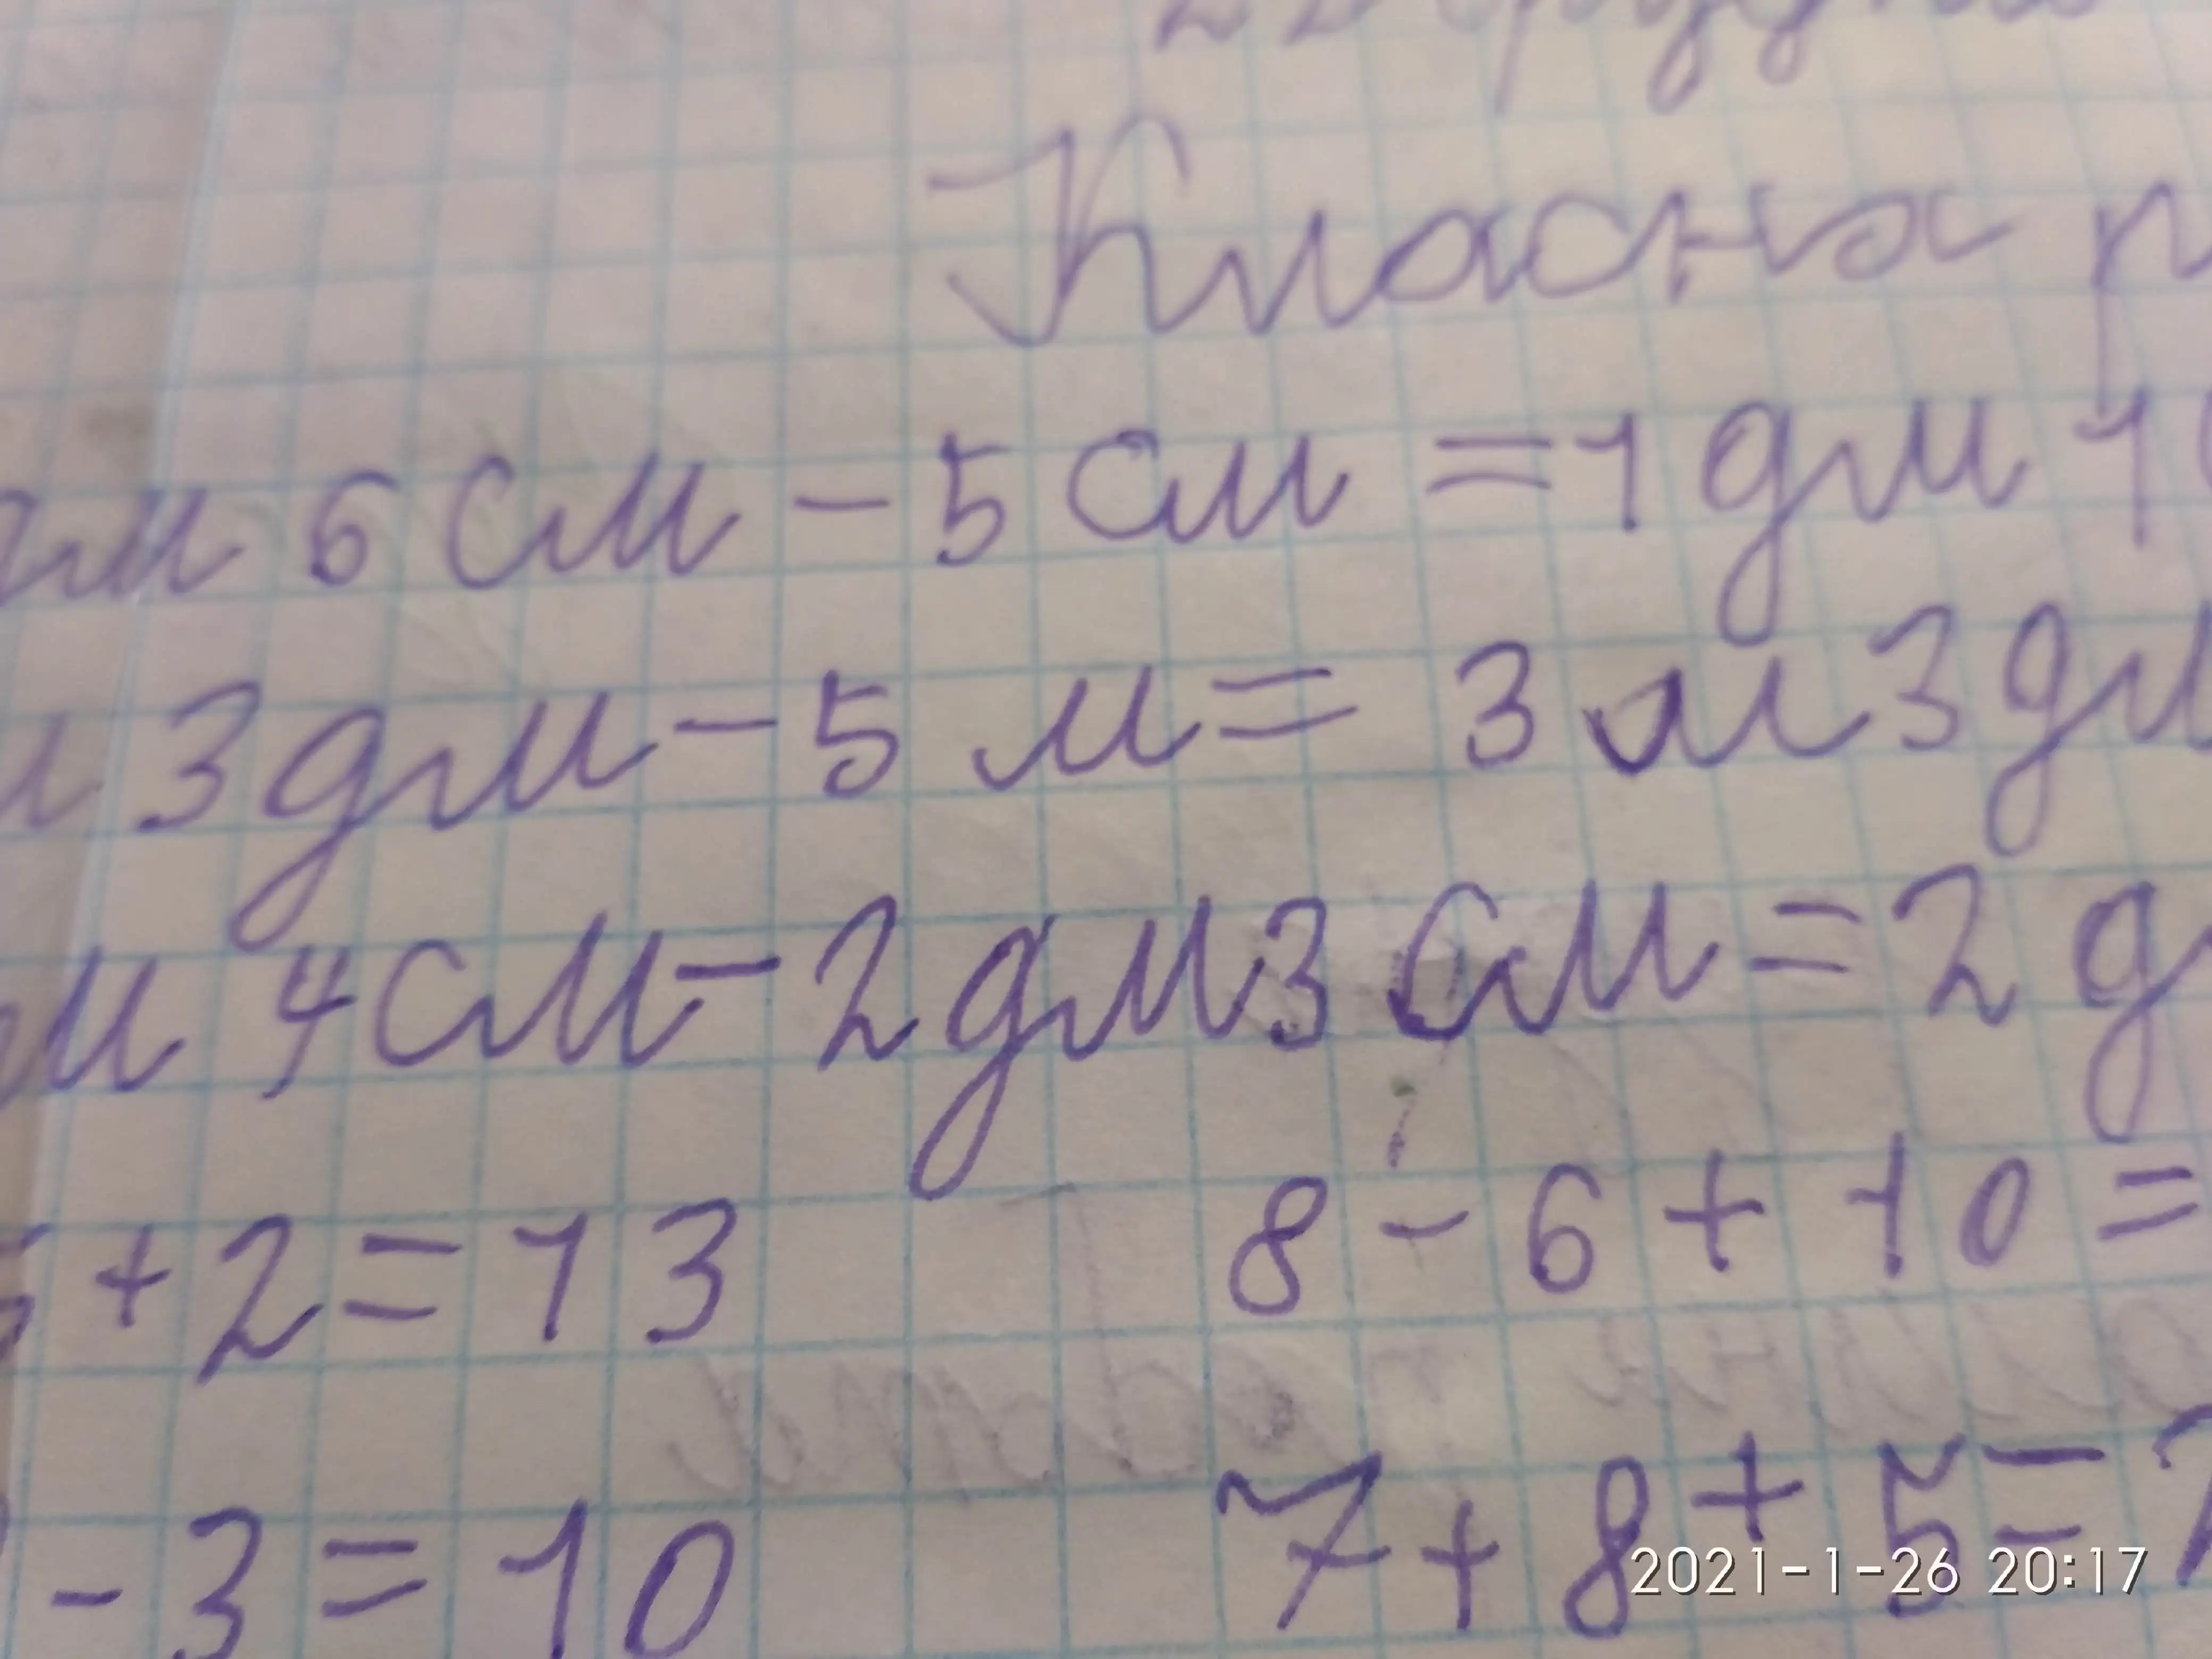 Класна
дм 6 см - 5 см = 1 дм 1
м 3 дм - 5 м = 3 м 3 дм
м 4 см - 2 дм 3 см = 2 д
5 + 2 = 13 8 - 6 + 10 =
- 3 = 10 7 + 8 + 5 = 2
2021-1-26 20:17